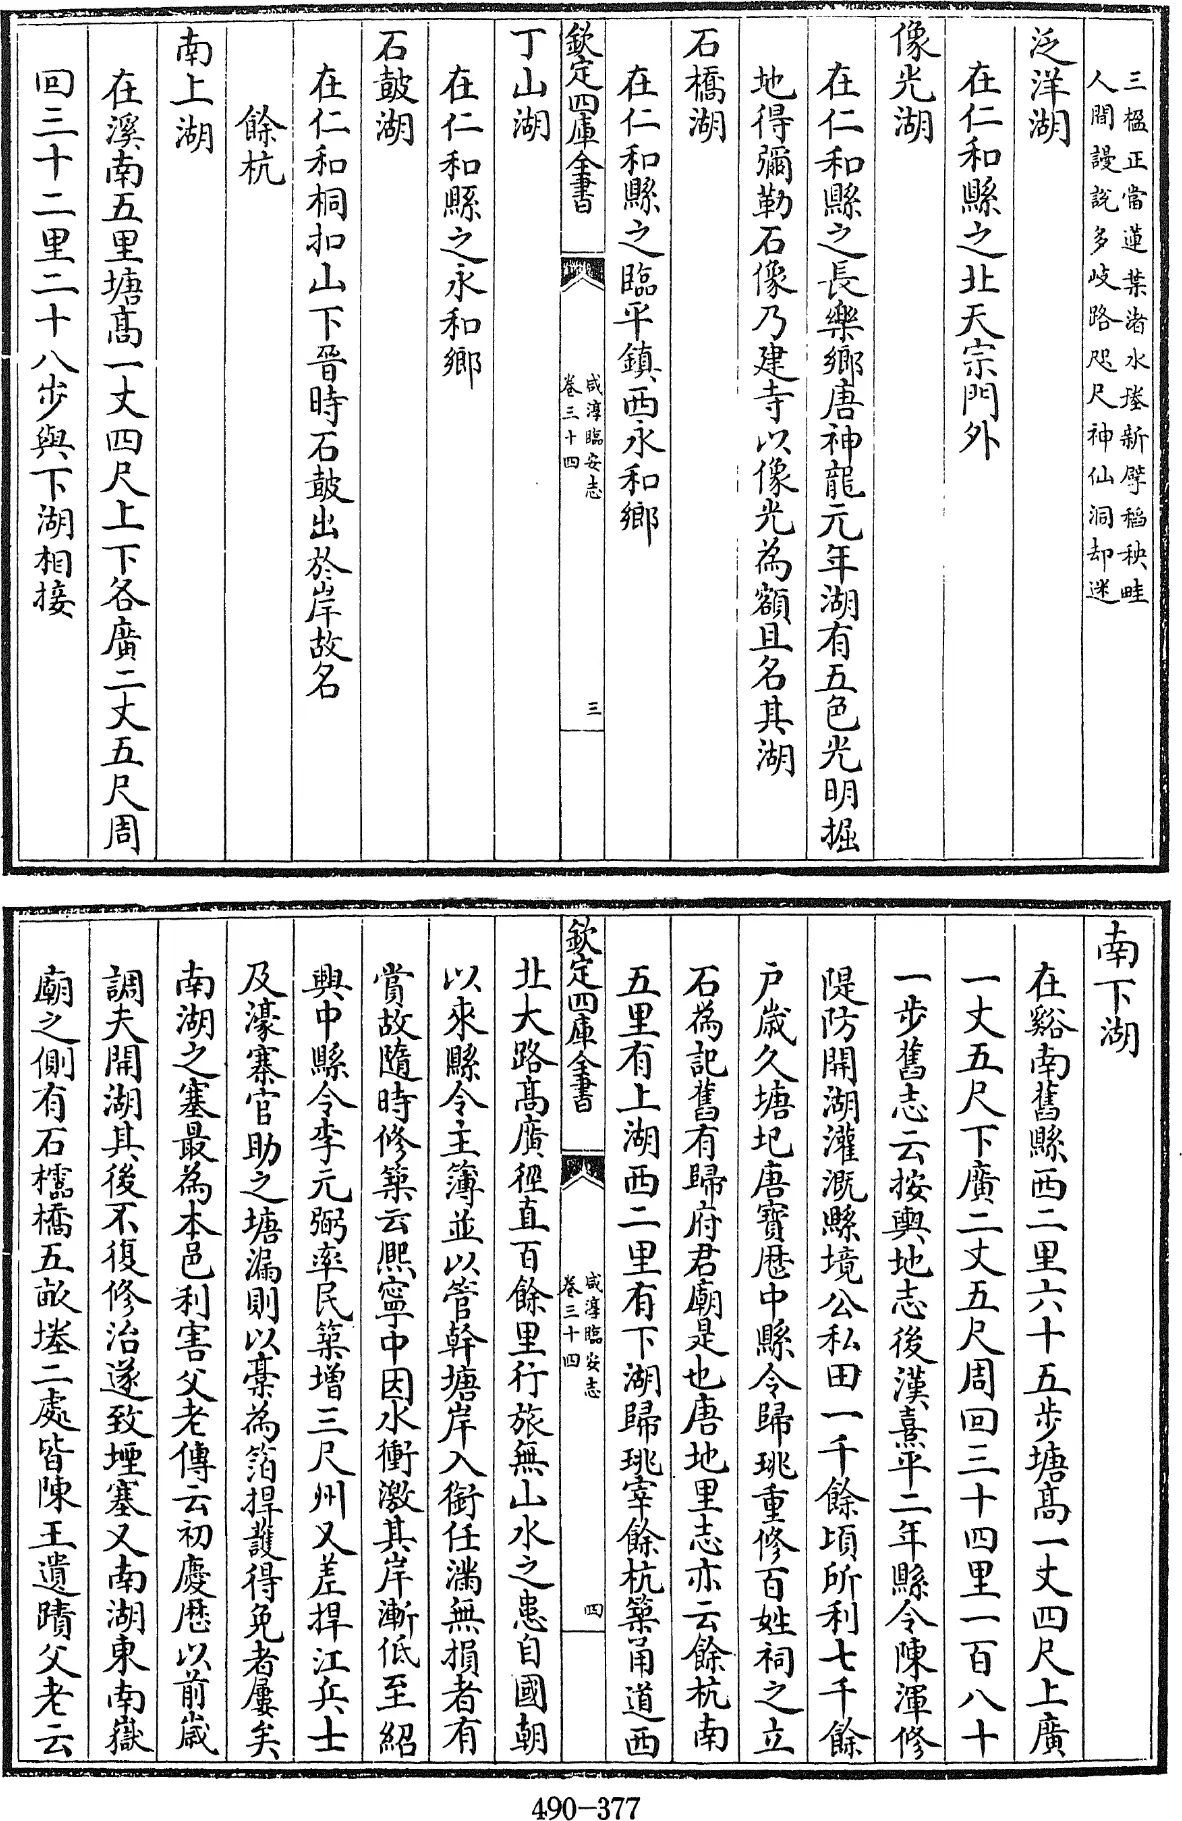 三楹正當蓮葉渚水塍新擘稻秧畦
人間謾說多岐路咫尺神仙洞却迷
泛洋湖
在仁和縣之北天宗門外
像光湖
在仁和縣之長樂鄉唐神龍元年湖有五色光明掘
地得彌勒石像乃建寺以像光為額且名其湖
石橋湖
在仁和縣之臨平鎮西永和鄉
欽定四庫全書
咸淳臨安志
卷三十四
三
丁山湖
在仁和縣之永和鄉
石鼓湖
在仁和桐扣山下晉時石鼓出於岸故名
餘杭
南上湖
在溪南五里塘髙一丈四尺上下各廣二丈五尺周
回三十二里二十八步與下湖相接
南下湖
在谿南舊縣西二里六十五步塘髙一丈四尺上廣
一丈五尺下廣二丈五尺周回三十四里一百八十
一步舊志云按輿地志後漢熹平二年縣令陳渾修
隄防開湖灌溉縣境公私田一千餘頃所利七千餘
戶歲久塘圮唐寶歷中縣令歸珧重修百姓祠之立
石為記舊有歸府君廟是也唐地里志亦云餘杭南
五里有上湖西二里有下湖歸珧宰餘杭築甬道西
欽定四庫全書
咸淳臨安志
卷三十四
四
北大路髙廣徑直百餘里行旅無山水之患自國朝
以來縣令主簿並以管幹塘岸入銜任滿無損者有
賞故隨時修築云熈寧中因水衝激其岸漸低至紹
興中縣令李元弼率民築增三尺州又差捍江兵士
及濠寨官助之塘漏則以橐為箔捍護得免者屢矣
南湖之塞最為本邑利害父老傳云初慶歷以前歲
調夫開湖其後不復修治遂致堙塞又南湖東南嶽
廟之側有石橋五畝塍二處皆陳王遺蹟父老云
490-377